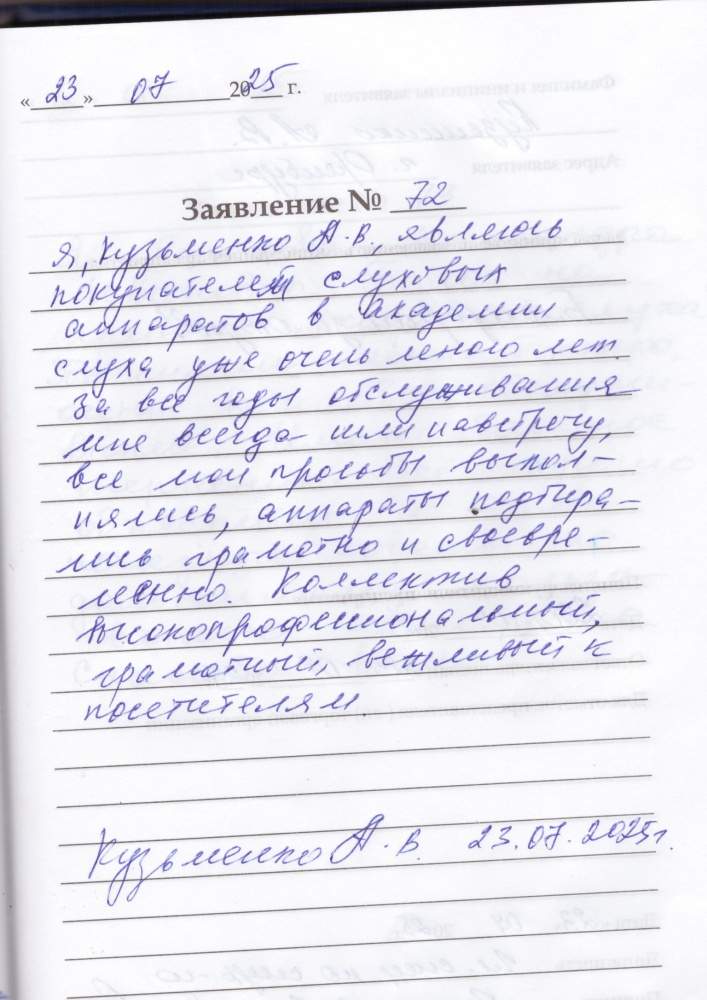 «23» 07 2025 г.
Заявление № 72
Я, Кузьменко А.В, являюсь
покупателем слуховых
аппаратов в Академии
слуха уже очень много лет
За все годы обслуживания
мне всегда шли навстречу,
все мои просьбы выпол-
нялись, аппараты подбира-
лись грамотно и своевре-
менно. Коллектив
высокопрофессиональный,
грамотный, вежливый к
посетителям
Кузьменко А.В. 23.07.2025г.